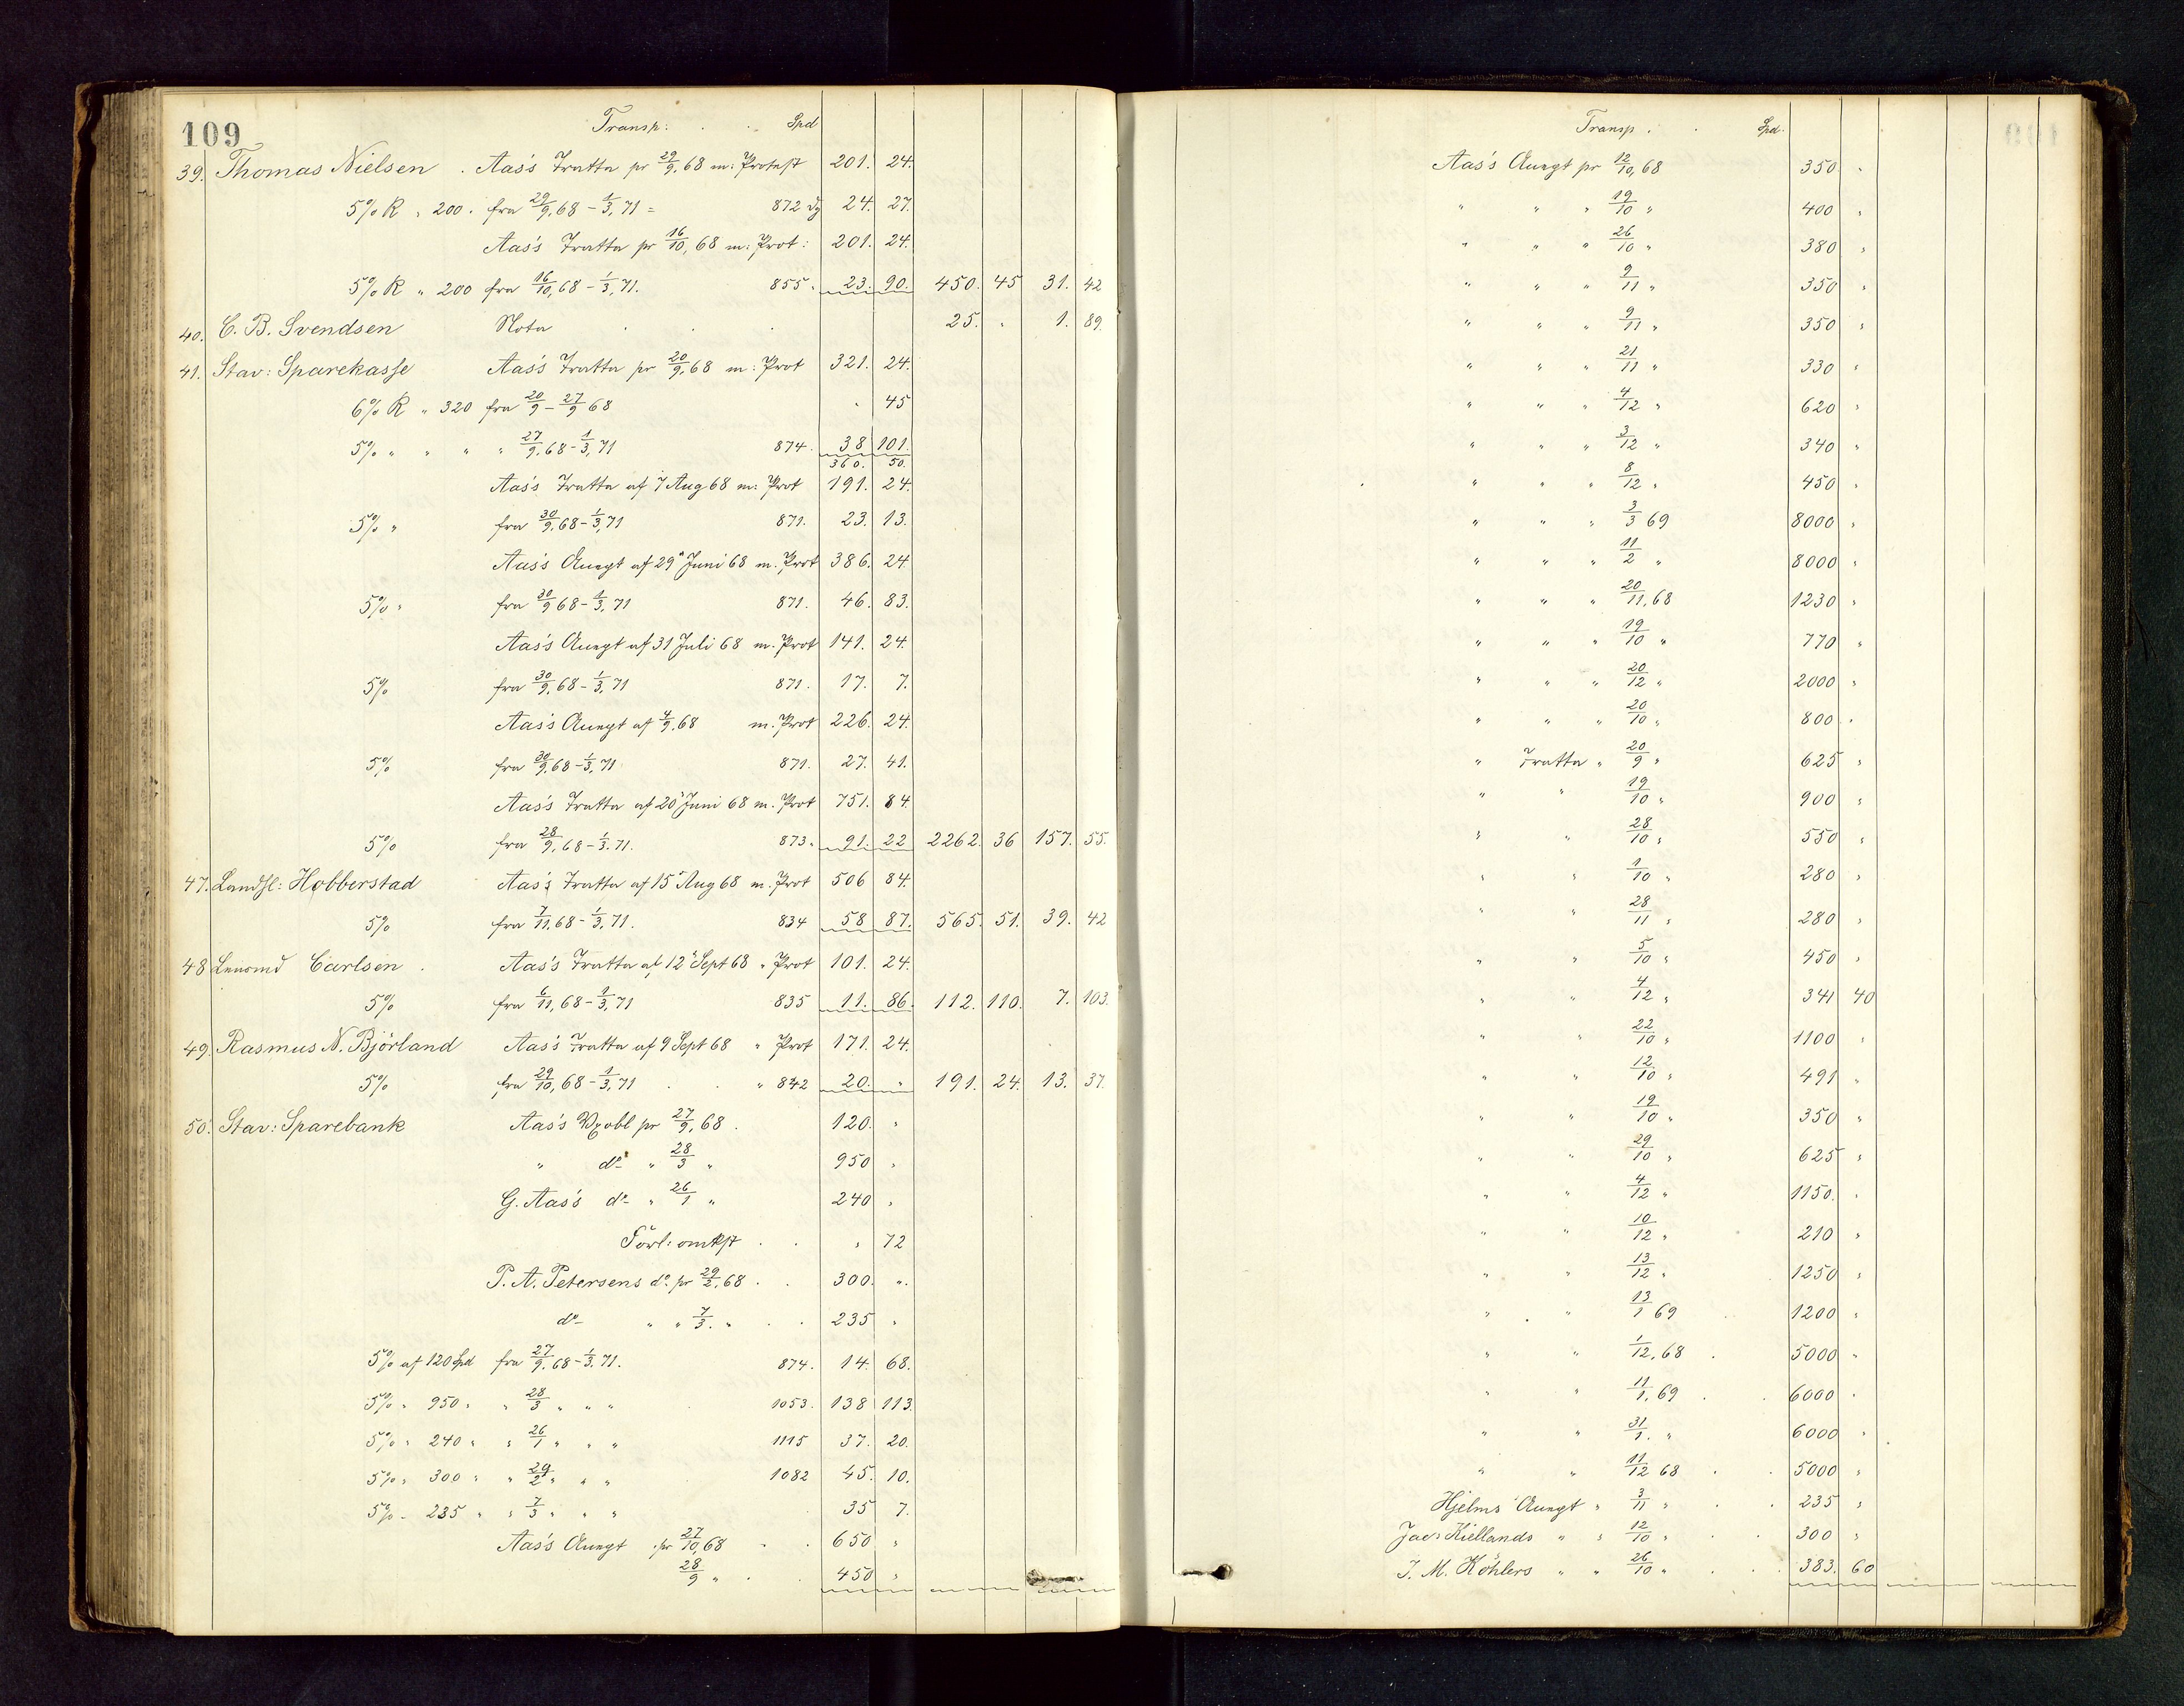 109
Transp: . . Spd
39. Thomas Nielsen . Aas's Tratta pr 29/9, 68 m: Protest 201. 24.
5% R " 200 . fra 29/9, 68 - 1/3, 71 = 872 dg 24. 27.
Aas's Tratta pr 16/10, 68 m: Prot: 201. 24.
5% R " 200 fra 16/10, 68 - 1/3, 71. 855 " 23. 90. 450. 45 31. 42
40. C. B. Svendsen Nota . . . 25. " 1. 89.
41. Stav: Sparekasse Aas's Tratta pr 20/9, 68 m: Prot 321. 24.
6% R " 320 fra 20/9 - 27/9 68 " 45
5% " " " " 27/9, 68 - 1/3, 71 874. 38 101.
360. 50.
Aas's Tratta af 7 Aug 68 m: Prot 191. 24.
5% " fra 30/9, 68 - 1/3, 71 871. 23. 13.
Aas's Accept af 29 Juni 68 m. Prot 386. 24.
5% " fra 30/9 68 - 1/3, 71 871. 46. 83.
Aas's Accept af 31 Juli 68 m. Prot 141. 24.
5% fra 30/9, 68 - 1/3, 71 871. 17. 7.
Aas's Accept af 4/9, 68 m. Prot 226. 24.
5% fra 30/9, 68 - 1/3, 71 871. 27. 41.
Aas's Tratta af 20 Juni 68 m. Prot 751. 84.
5% fra 28/9, 68 - 1/3. 71. 873. 91. 22 2262. 36 157. 55.
47. Landsl: Hobberstad Aas's Tratta af 15 Aug 68 m. Prot 506 84.
5% fra 7/11, 68 - 1/3, 71. 834 58 87. 565. 51. 39. 42
48 Carlsen . Aas's Tratta af 12 Sept 68 " Prot 101. 24.
5% fra 6/11, 68 - 1/3, 71 835 11. 86. 112. 110. 7. 103.
49. Rasmus N. Björland Aas's Tratta af 9 Sept 68 " Prot 171. 24.
5% fra 29/10, 68 - 1/3, 71 . . " 842 20. " 191. 24. 13. 37.
50. Stav: Sparebank Aas's Vxobl pr 27/9, 68 . 120. "
" do " 28/3 " 950 "
G. Aas's do " 26/1 " 240 "
Forl: omkst . . " 72
P. A. Petersens do. pr 29/2, 68 . . 300. "
do " " 7/3. " . . 235 "
5% af 120 Spd fra 27/9, 68 - 1/3, 71. 874. 14. 68.
5% " 950 " " 28/3 " " " 1053. 138 113
5% " 240 " " 26/1 " " " 1115 37. 20.
5% " 300 " " 29/2 " " " 1082 45. 10.
5% - 235 " " 7/3 " " " 35 7.
Aas's Accept pr 27/10, 68 . . 650 "
28/9 " . . 450 "
Transp . . Spd.
Aas's Accept pr 12/10, 68 350 "
" " " 19/10 " 400 "
" " " 26/10 " 380 "
" " " 9/11 " 350 "
" " " 9/11 " 350 "
" " " 21/11 " 330 "
" " " 4/12 " 620 "
" " " 3/12 " 340 "
" " " 8/12 " 450 "
" " " 3/3 69 8000 "
" " " 11/2 " 8000 "
" " " 20/11, 68 1230 "
" " " 19/10 " 770 "
" " " 20/12 " 2000 "
" " " 20/10 " 800 "
" Tratta " 20/9 " 625 "
" " 19/10 " 900 "
" " 28/10 " 550 "
" " 1/10 " 280 "
" " 28/11 " 280 "
" " 5/10 " 450 "
" " 4/12 " 341 40
" " 22/10 " 1100 "
" " 12/10 " 491 "
" " 19/10 " 350 "
" " 29/10 " 625 "
" " 4/12 " 1150. "
" " 10/12 " 210 "
" " 13/12 " 1250 "
" " 13/1 69 . 1200 "
" " 1/12, 68 . 5000 "
" " 11/1, 69 . . 6000 "
" " 31/1. " 6000 "
" " 11/12 68 . . 5000 "
Hjelms Accept " 3/11 " . . 235 "
Jac: Kiellands " " 12/10 " . . 300 "
J. M. Köhlers " " 26/10 " . . 383. 60